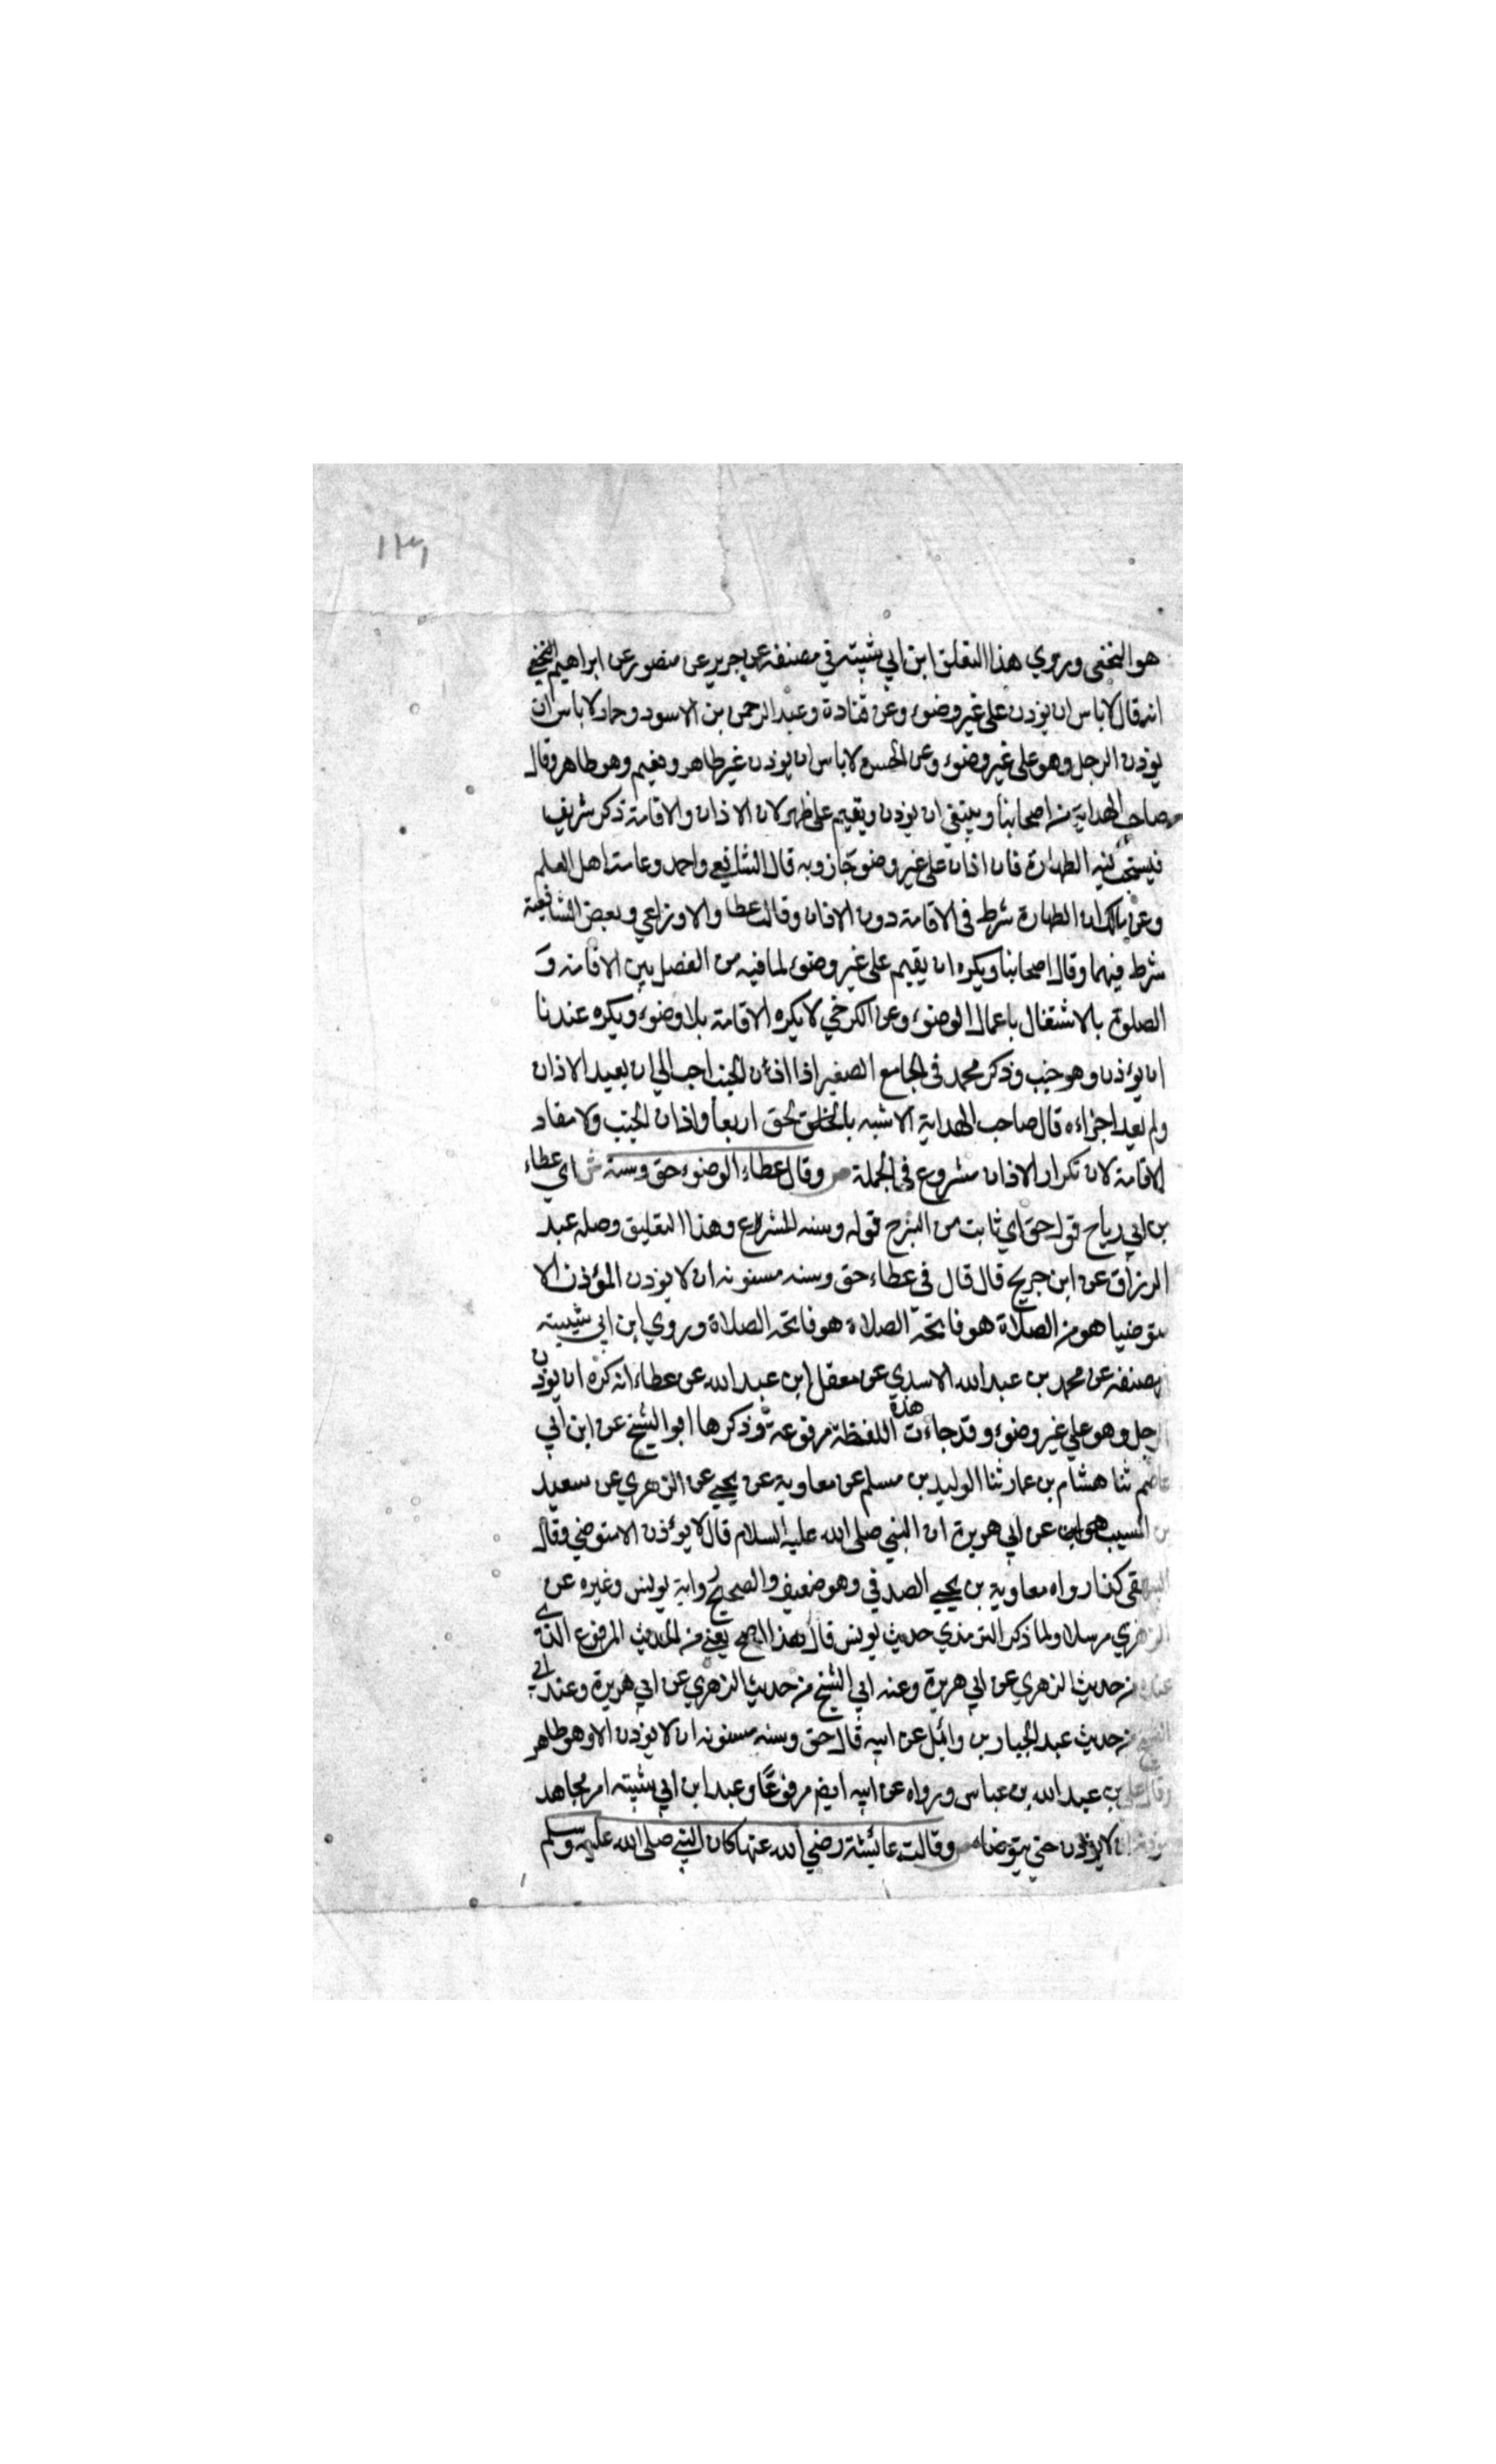 ١٣١
هو النخعي وروي هذا التعلق ابن ابي شيبته في مصنفه عن جرير عن منصور عن ابراهيم النخعي
انه قال لا باس ان يوذن علي غير وضوء وعن قتادة وعبد الرحمن بن الاسود وحماد لا باس ان
يوذن الرجل وهو علي غير وضوء وعن الحسن لا باس ان يوذن غير طاهر ويقيم وهو طاهر وقال
صاحب الهداية من اصحابنا وينبغي ان يوذن ويقيم علي طهر لان الاذان والاقامة ذكر شريف
فيستحب فيه الطهارة فان اذان علي غير وضوء جاز وبه قال الشافعي واحمد وعامة اهل العلم
وعن مالك ان الطهارة شرط في الاقامة دون الاذان وقالت عطا والاوزاعي وبعض الشافعية
شرط فيهما وقال اصحابنا ويكره ان يقيم علي غير وضوء لما فيه من الفصل بين الاقامة و
الصلوة بالاشتغال باعمال الوضوء وعن الكرخي لا يكره الاقامة بلا وضوء ويكره عندنا
ان يؤذن وهو جنب وذكر محمد في الجامع الصغير اذا اذن الجنب احب الي ان يعيد الاذان
ولم يعد اجزاءه قال صاحب الهداية الاشبه بالحق اربعا واذان الجنب ولا معاد
الاقامة لان تكرار الاذان مشروع في الجملة ص وقال عطاء الوضوء حق وسنة ش اي عطاء
بن ابي رباح قوله حق اي ثابت من الشرح قوله وسنه للشرع وهذا التعليق وصله عبد
الرزاق عن ابن جريج قال قال في عطاء حق وسنه مسنونه ان لا يوذن المؤذن الا
متوضيا هو من الصلاة هو فاتحة الصلاة هو فاتحه الصلاة وروي ابن ابي شيبته
مصنفه عن محمد بن عبد الله الاسدي عن معقل ابن عبد الله عن عطاء انه كره ان يوذن
الرجل وهو علي غير وضوء وقد جاءت هذة اللفظة مرفوعة وذكرها ابو الشيخ عن ابن ابي
عاصم ثنا هشام بن عمار ثنا الوليد بن مسلم عن معاوية عن يحيي عن الزهري عن سعيد
بن المسيب عن ابي هريرة ان النبي صلي الله عليه السلام قال لا يؤذن الا متوضي وقال
البيهقي كذا رواه معاوية بن يحيي الصدفي وهو ضعيف والصحيح رواية يونس وغيره عن
الزهري مرسلا ولما ذكر الترمذي حديث يونس قال هذا اصح يعني من الحديث المرفوع الذي
عنده من حديث الزهري عن ابي هريرة وعنه ابي الشيخ من حديث الزهري عن ابي هريرة وعند ابي
الشيخ من حديث عبد الجبار بن وائل عن ابيه قال حق وسنه مسنونه ان لا يوذن الا وهو طاهر
وقال علي بن عبد الله بن عباس ورواه عن ابيه ايض مرفوعًا وعبد ابن ابي شيبته امر مجاهد
موذنه ان لا يوذن حتي يتوضاء ص وقالت عائشة رضي الله عنها كان النبي صلي الله عليه وسلم